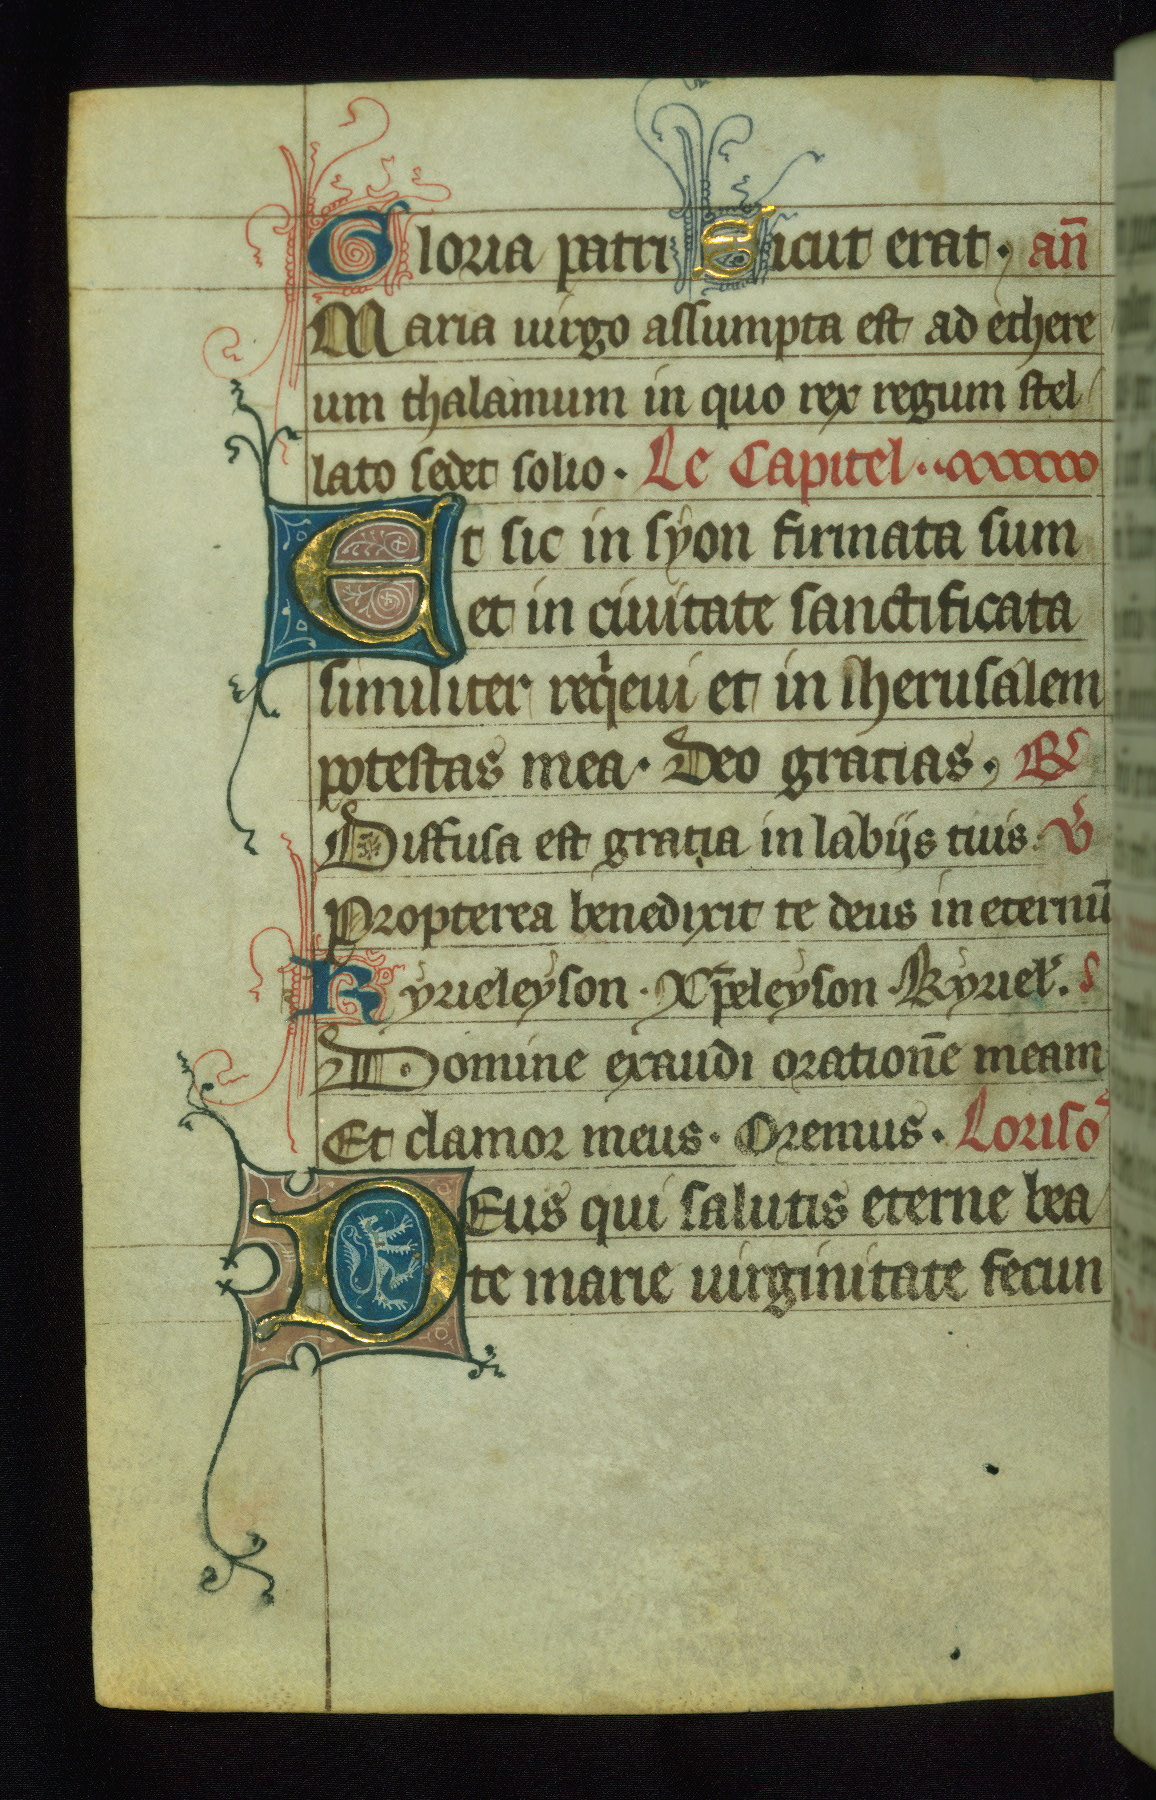 Gloria patri Sicut erat. an̄
Maria uirgo assumpta est ad ethere
um thalamum in quo rex regum stel
lato sedet solio. Le Capitel.
Et sic in syon firmata sum
et in ciuitate sanctificata
similiter reqͥeui et in iherusalem
potestas mea. Deo gracias. ℟
Diffusa est gratia in labijs tuis. ℣
Propterea benedixit te deus in eternū
Kyrieleyson. Xp̄eleyson. Kyriel'.
Domine exaudi orationē meam
Et clamor meus. Oremus. Loriso
DEus qui salutis eterne bea
te marie uirginitate fecun